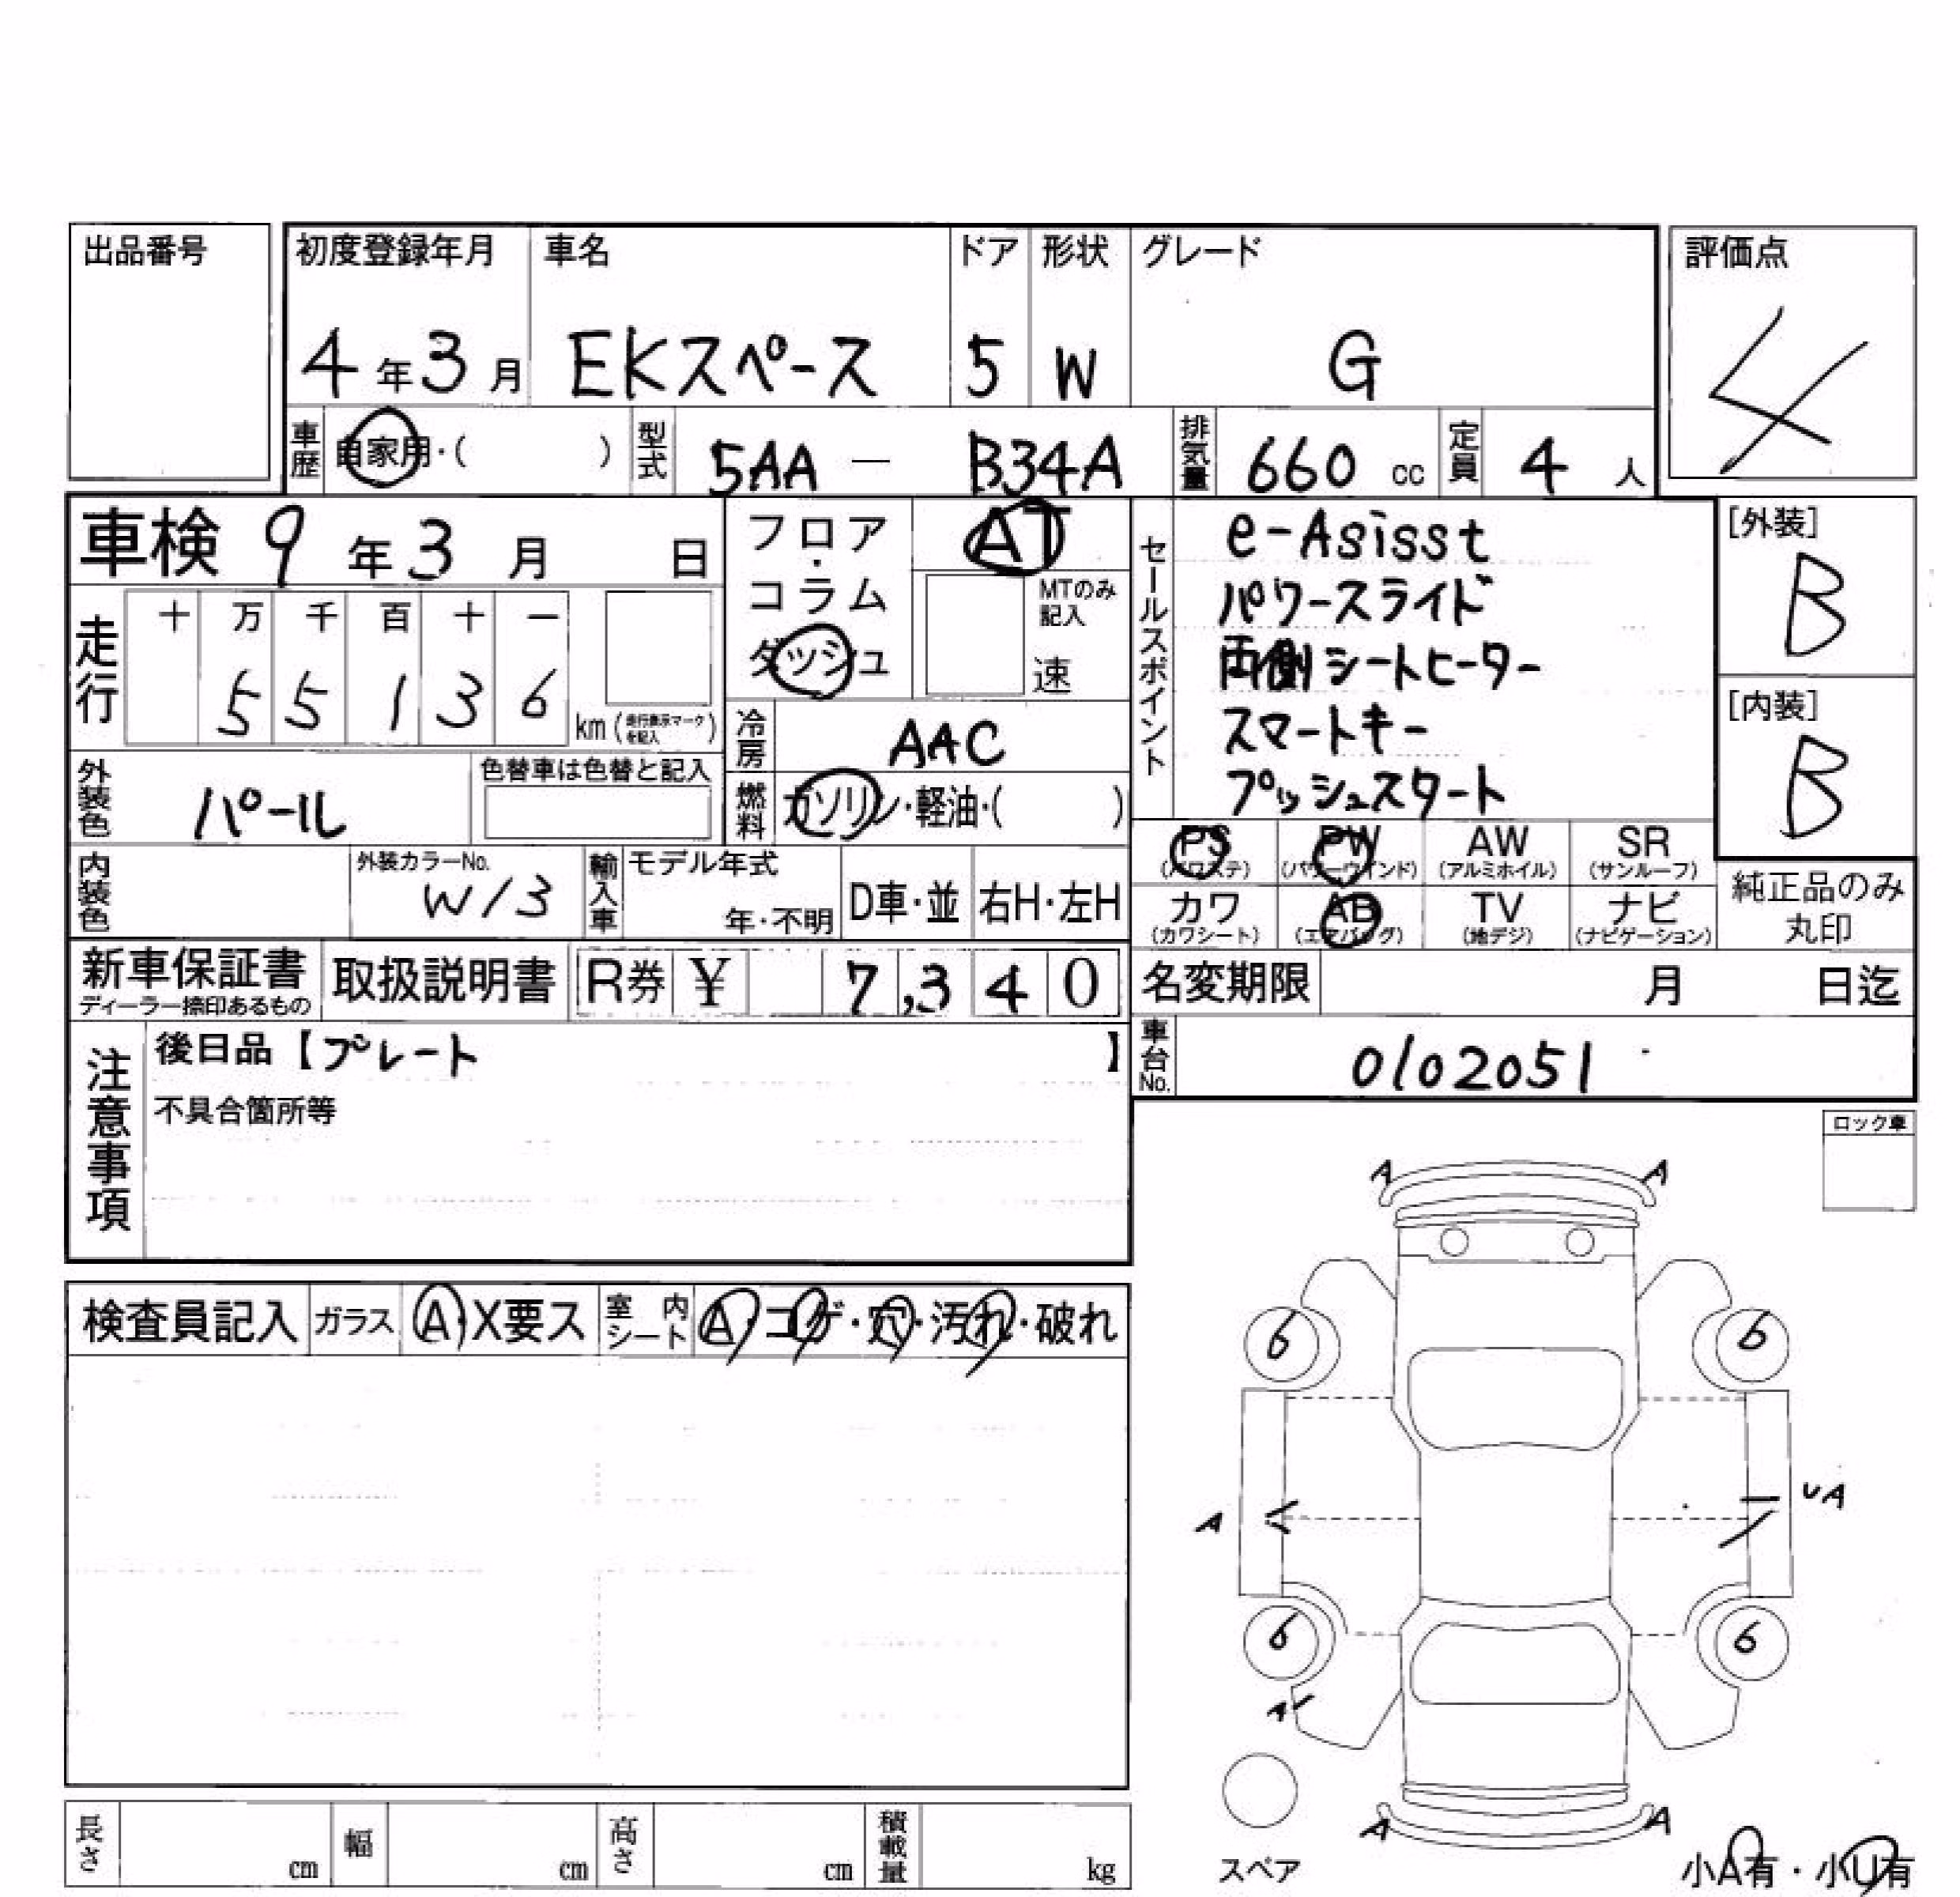 出品番号
初度登録年月 車名 ドア 形状 グレード 評価点
4年3月 EKスペース 5 W G 4
車歴 自家用・( ) 型式 5AA － B34A 排気量 660 cc 定員 4 人
車検 9年3月 日
フロア・コラム ダッシュ AT
MTのみ記入 速
セールスポイント
e-Asisst
パワースライド
両側シートヒーター
スマートキー
プッシュスタート
[外装] B
[内装] B
走行 十 万 千 百 十 一
5 5 1 3 6 km (走行表示マークを記入)
冷房 AAC
外装色 パール 色替車は色替と記入
燃料 ガソリン・軽油・( )
PS (パワステ) PW (パワーウインド) AW (アルミホイル) SR (サンルーフ)
カワ (カワシート) AB (エアバッグ) TV (地デジ) ナビ (ナビゲーション)
純正品のみ丸印
内装色 外装カラーNo. W13 輸入車 モデル年式 年・不明 D車・並 右H・左H
新車保証書 ディーラー捺印あるもの 取扱説明書 R券 ¥ 7,340
名変期限 月 日迄
車台No. 0102051
注意事項
後日品【プレート 】
不具合箇所等
ロック車
検査員記入 ガラス A・X要ス 室内シート A・コゲ・穴・汚れ・破れ
A A
6 6
A UA
6 6
A
A A
スペア
小A有・小U有
長さ cm 幅 cm 高さ cm 積載量 kg